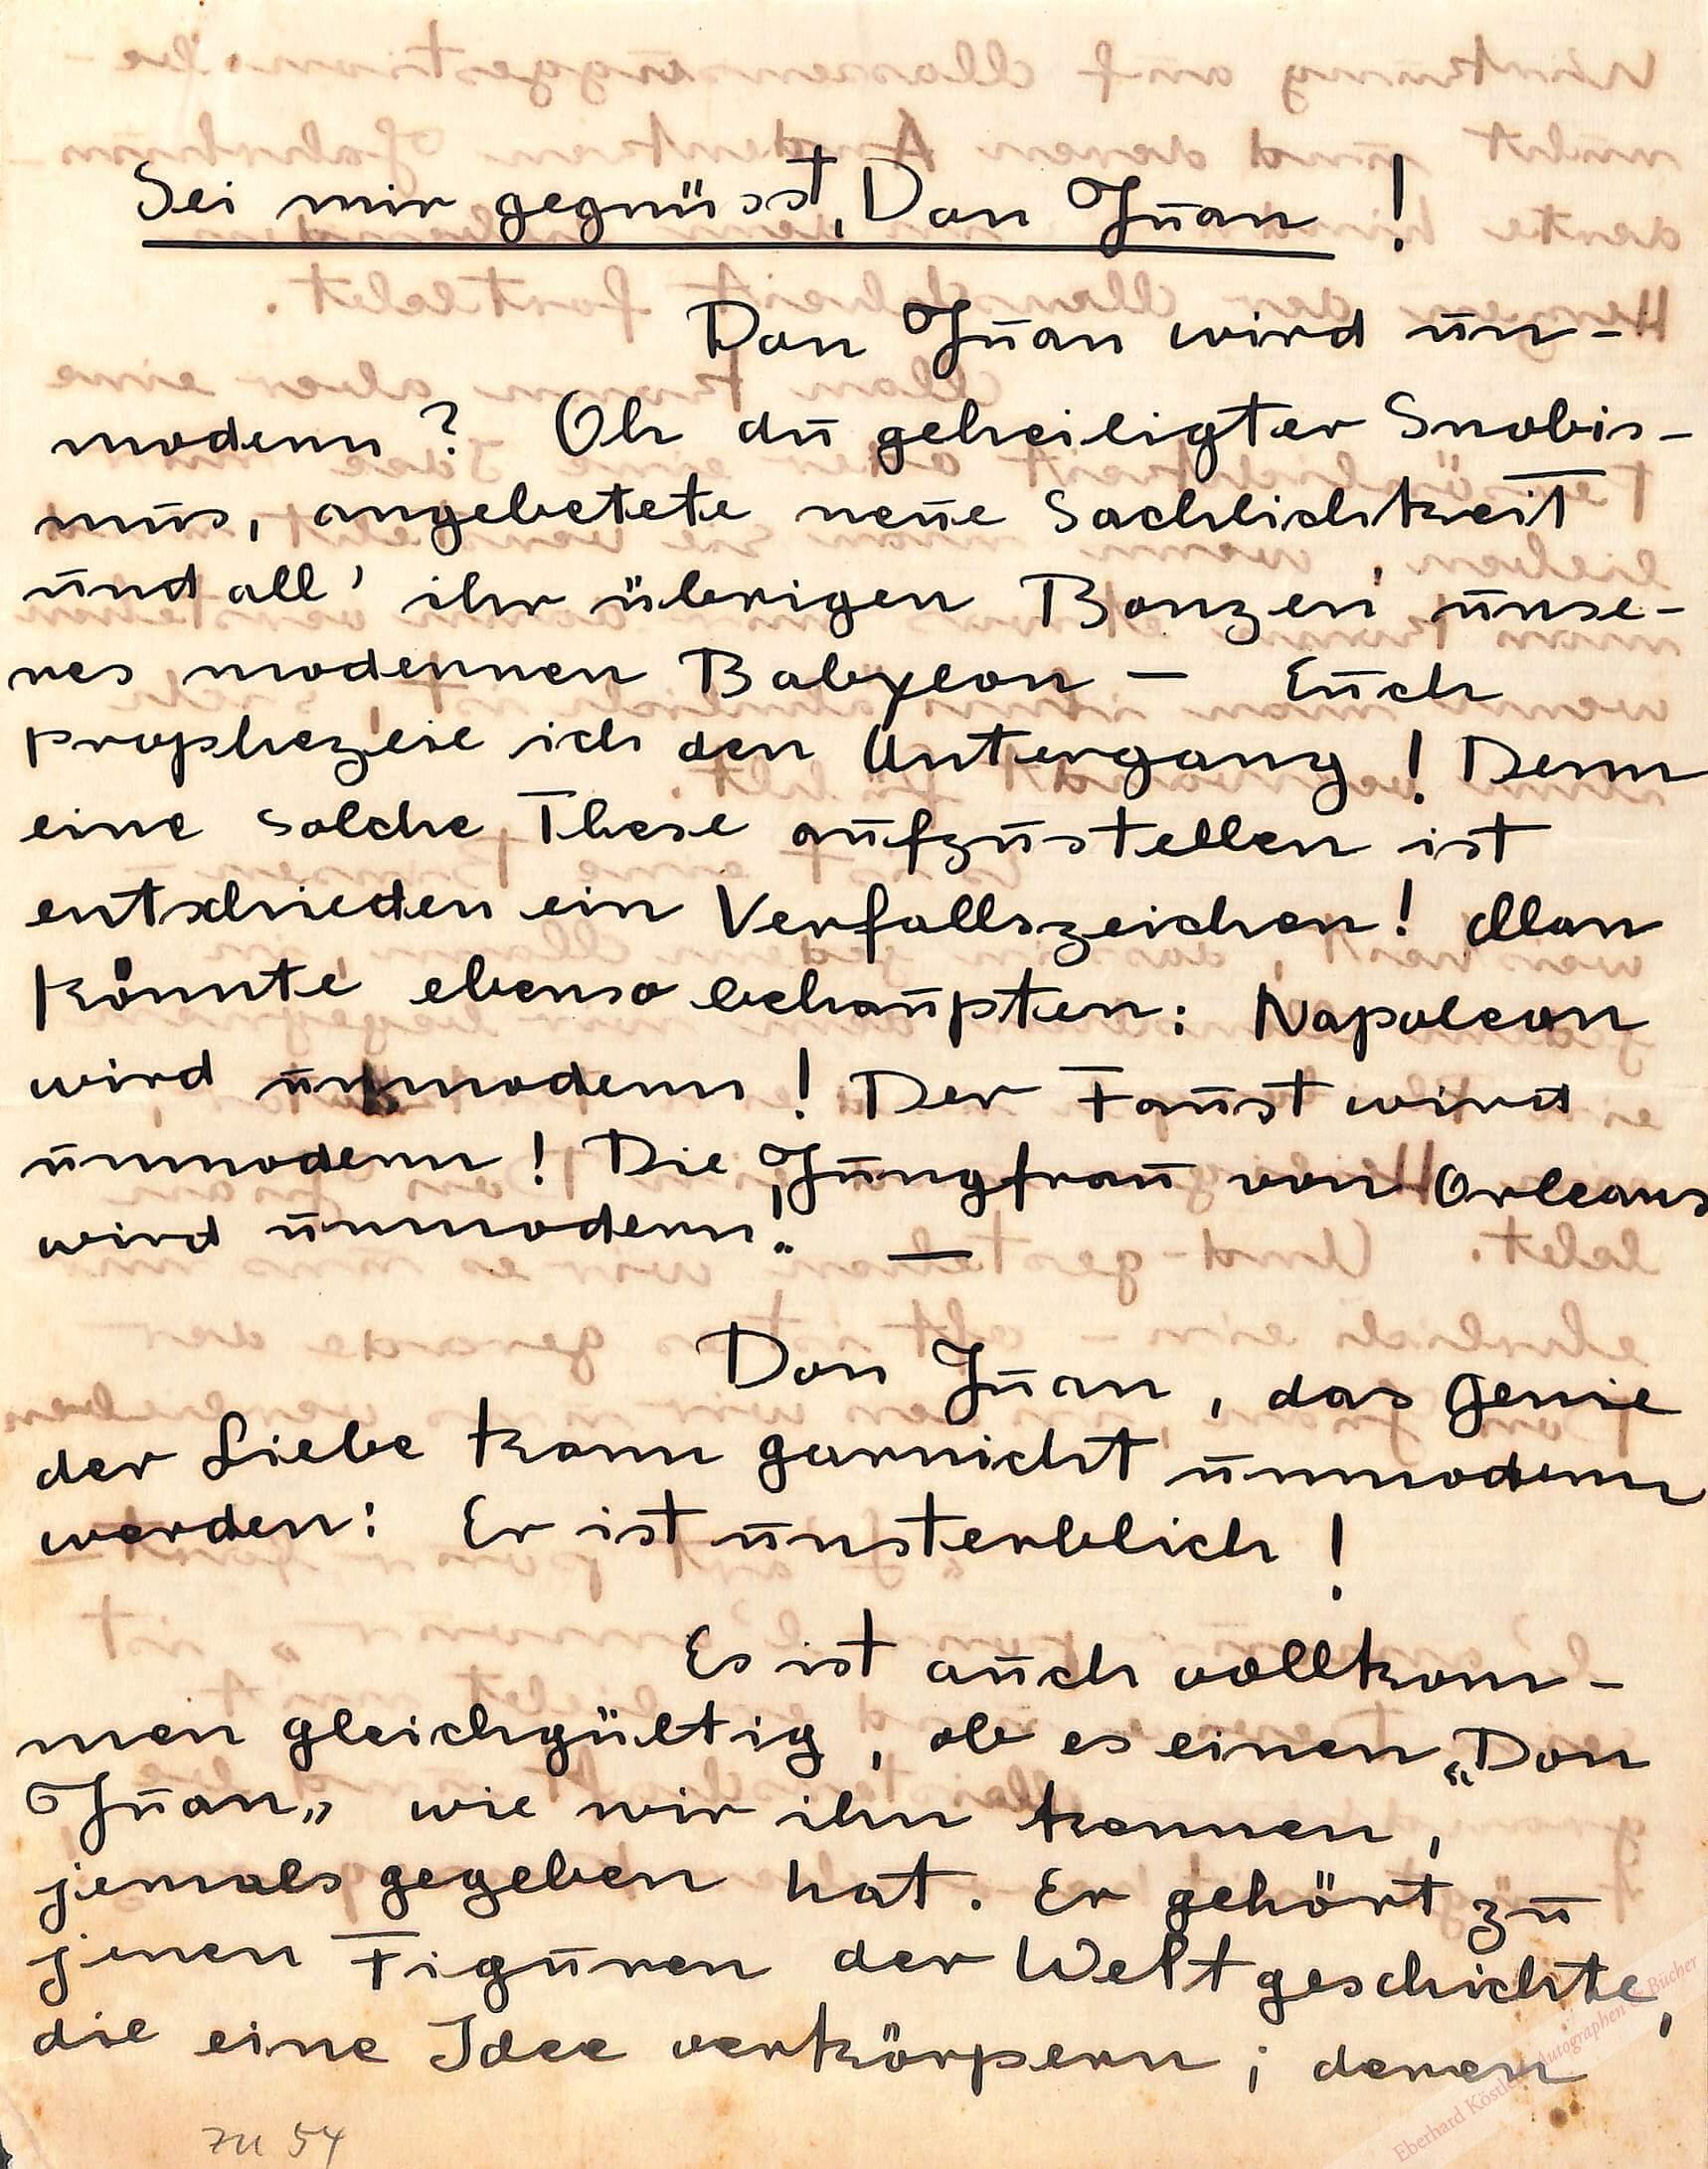 Sei mir gegrüsst, Don Juan !
Don Juan wird un-
modern ? Oh du geheiligter Snobis-
mus, angebetete neue Sachlichkeit
und all' ihr übrigen Bonzen unse-
res modernen Babylon — Euch
prophezeie ich den Untergang ! Denn
eine solche These aufzustellen ist
entschieden ein Verfallszeichen ! Man
könnte ebenso behaupten : Napoleon
wird unmodern ! Der Faust wird
unmodern ! Die Jungfrau von Orleans
wird unmodern ! —
Don Juan, das Genie
der Liebe kann garnicht unmodern
werden : Er ist unsterblich !
Es ist auch vollkom-
men gleichgültig, ob es einen „Don
Juan„ wie wir ihn kennen,
jemals gegeben hat. Er gehört zu
jenen Figuren der Weltgeschichte,
die eine Idee verkörpern ; deren
zu 54
Eberhard Köstler Autographen & Bücher